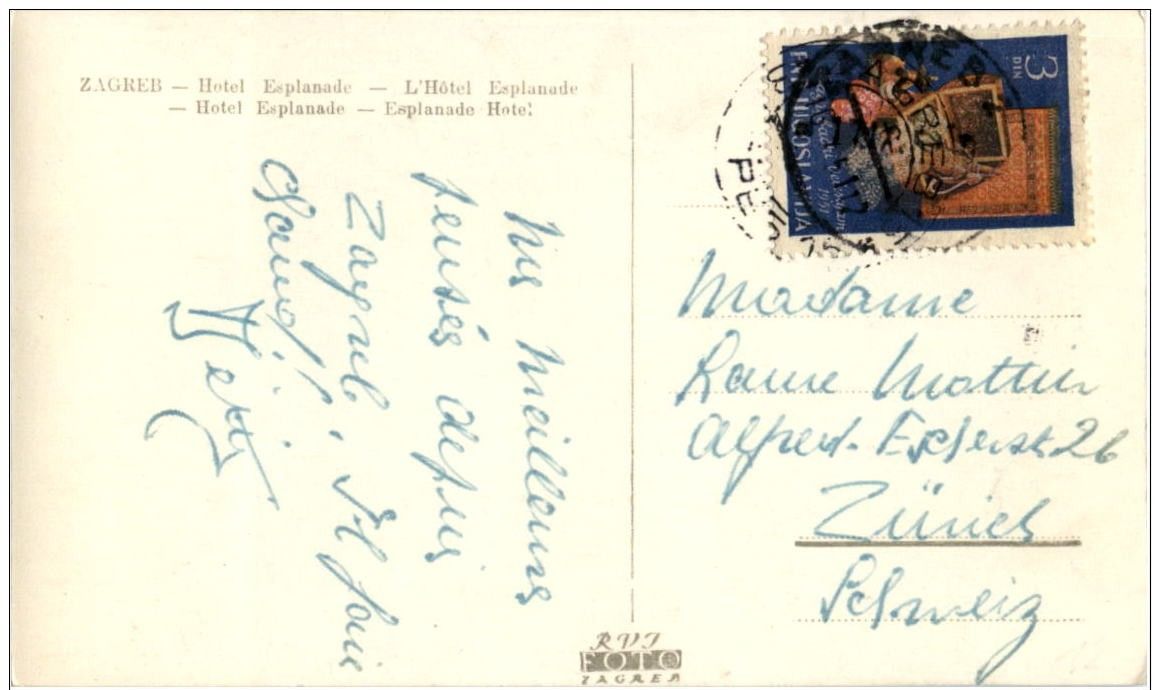 ZAGREB — Hotel Esplanade — L'Hôtel Esplanade
— Hotel Esplanade — Esplanade Hotel
Mes meilleures
pensés depuis
Zagreb, Il fait
chaud!
3
DIN
FNR JUGOSLAVIJA
ZAGREB
Madame
Mottier
Alfred-Escherstr. 26
Zürich
Schweiz
RVI
FOTO
ZAGREB